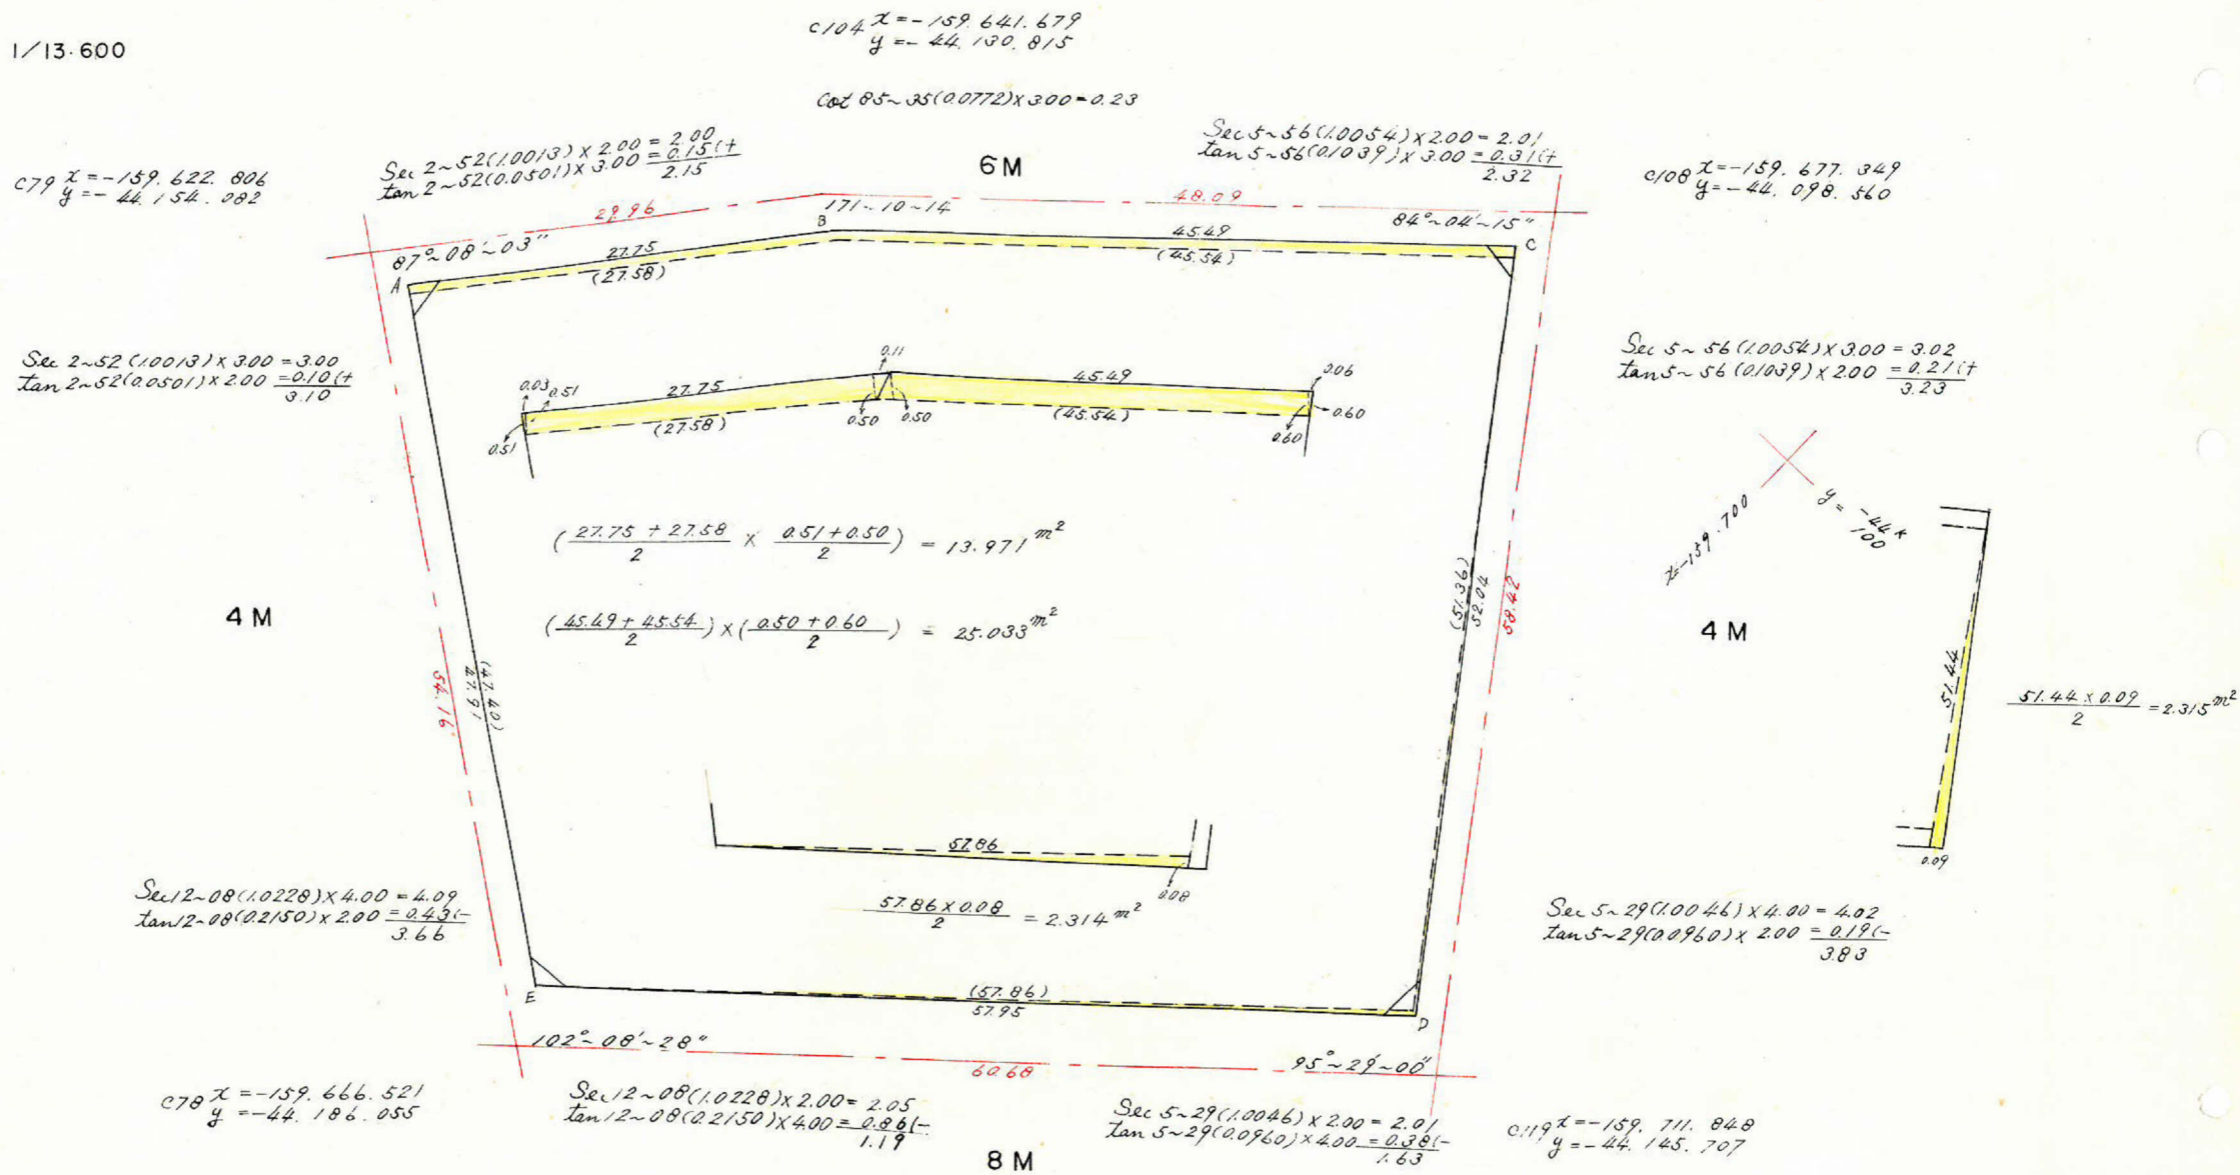 1/13.600
C104 x=-159.641.679
y=-44.130.815
Cot 85~35(0.0772)×3.00=0.23
Sec 2~52(1.0013)×2.00=2.00
tan 2~52(0.0501)×3.00=0.15(+
2.15
6M
Sec 5~56(1.0054)×2.00=2.01
tan 5~56(0.1039)×3.00=0.31(+
2.32
C79 x=-159.622.806
y=-44.154.082
C108 x=-159.677.349
y=-44.098.560
29.96
171~10~14
48.09
84°~04'~15"
87°~08'~03"
A
27.75
(27.58)
B
45.49
(45.54)
C
Sec 2~52(1.0013)×3.00=3.00
tan 2~52(0.0501)×2.00=0.10(+
3.10
Sec 5~56(1.0054)×3.00=3.02
tan 5~56(0.1039)×2.00=0.21(+
3.23
0.03
0.51
27.75
0.11
45.49
0.06
0.51
(27.58)
0.50
0.50
(45.54)
0.60
0.60
x=-159.700
y=-44*
100
(27.75+27.58/2 × 0.51+0.50/2) = 13.971 m²
(45.49+45.54/2)×(0.50+0.60/2) = 25.033 m²
4M
54.16
47.91
(47.40)
(51.36)
52.04
58.42
4M
51.44
51.44×0.09/2 =2.315 m²
0.09
57.86
0.08
57.86×0.08/2 = 2.314 m²
Sec 12~08(1.0228)×4.00=4.09
tan 12~08(0.2150)×2.00=0.43(-
3.66
Sec 5~29(1.0046)×4.00=4.02
tan 5~29(0.0960)×2.00=0.19(-
3.83
E
(57.86)
57.95
D
102°~08'~28"
60.68
95°~29'~00"
C78 x=-159.666.521
y=-44.186.055
Sec 12~08(1.0228)×2.00=2.05
tan 12~08(0.2150)×4.00=0.86(-
1.19
Sec 5~29(1.0046)×2.00=2.01
tan 5~29(0.0960)×4.00=0.38(-
1.63
C119 x=-159.711.848
y=-44.145.707
8M